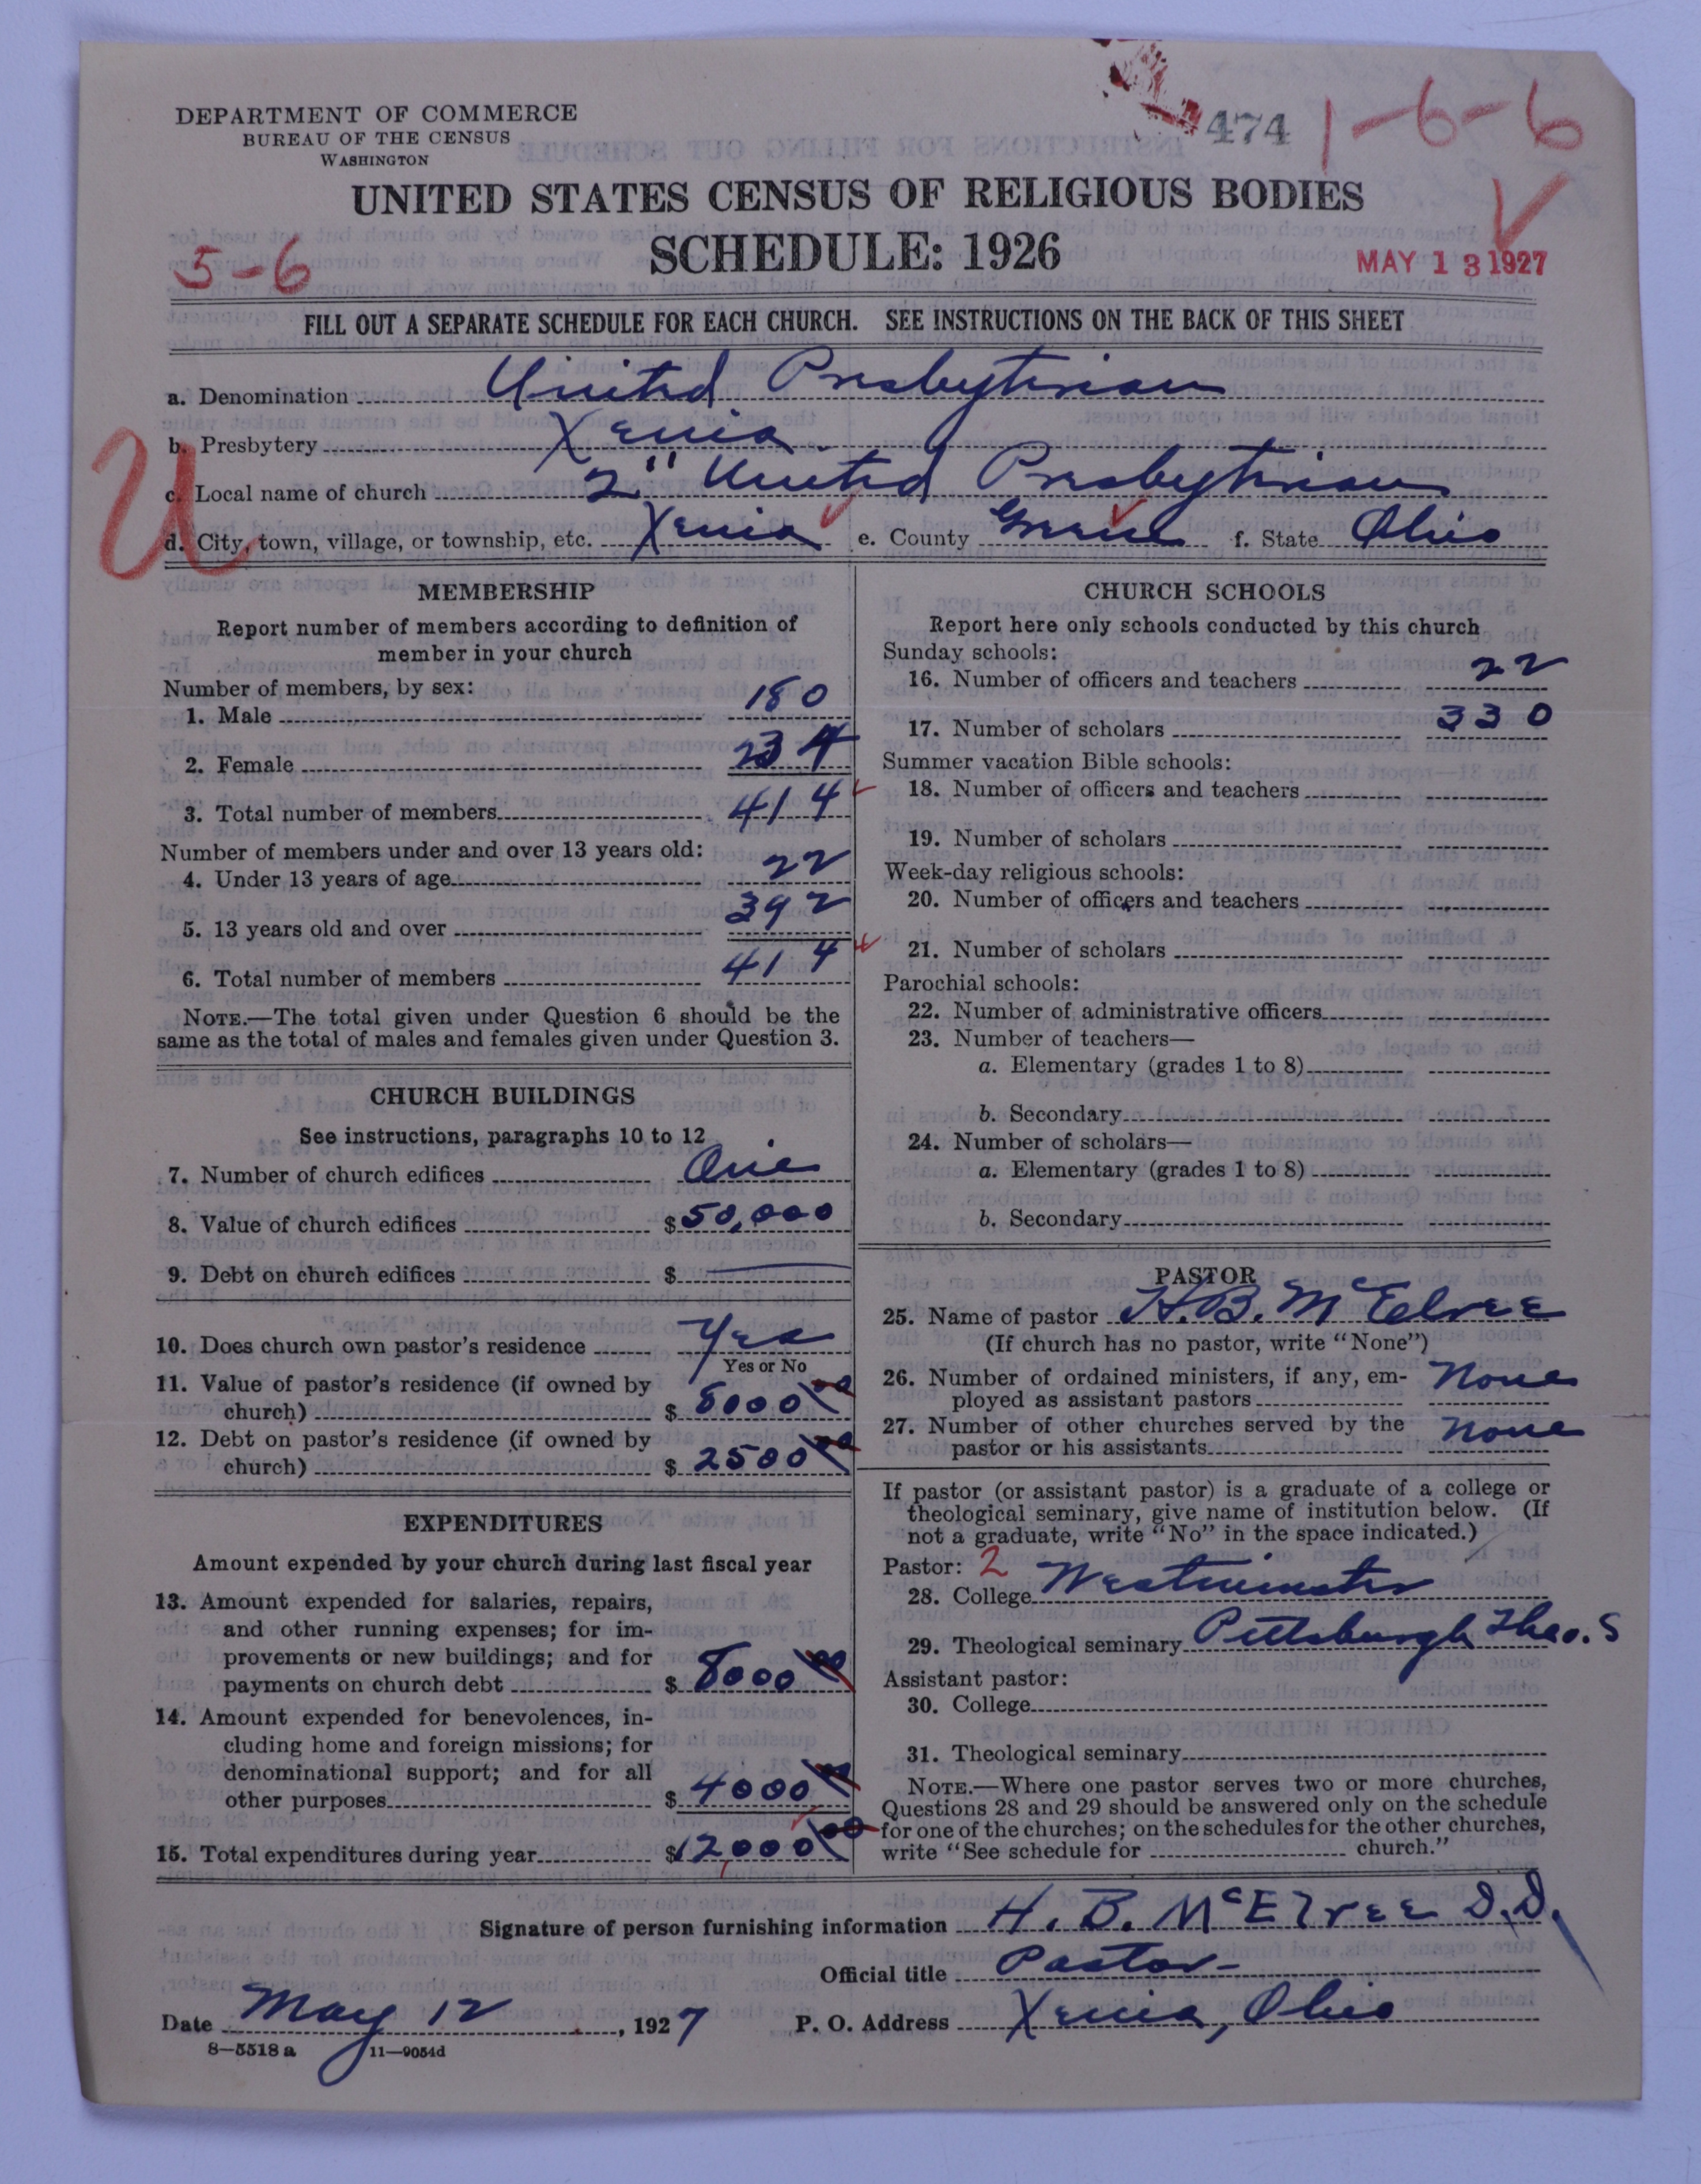 DEPARTMENT OF COMMERCE
BUREAU OF THE CENSUS
WASHINGTON
474
1-6-6
UNITED STATES CENSUS OF RELIGIOUS BODIES
SCHEDULE: 1926
5-6
MAY 13 1927
FILL OUT A SEPARATE SCHEDULE FOR EACH CHURCH. SEE INSTRUCTIONS ON THE BACK OF THIS SHEET
a. Denomination United Presbyterian
b. Presbytery Xenia
U
c. Local name of church 2" United Presbyterian
d. City, town, village, or township, etc. Xenia e. County Greene f. State Ohio
MEMBERSHIP
Report number of members according to definition of
member in your church
Number of members, by sex:
1. Male 180
2. Female 234
3. Total number of members 414
Number of members under and over 13 years old:
4. Under 13 years of age 22
5. 13 years old and over 392
6. Total number of members 414
NOTE.—The total given under Question 6 should be the
same as the total of males and females given under Question 3.
CHURCH BUILDINGS
See instructions, paragraphs 10 to 12
7. Number of church edifices One
8. Value of church edifices $50,000
9. Debt on church edifices $ —
10. Does church own pastor's residence Yes
Yes or No
11. Value of pastor's residence (if owned by
church) $ 8000 00
12. Debt on pastor's residence (if owned by
church) $ 2500 00
EXPENDITURES
Amount expended by your church during last fiscal year
13. Amount expended for salaries, repairs,
and other running expenses; for im-
provements or new buildings; and for
payments on church debt $ 8000 00
14. Amount expended for benevolences, in-
cluding home and foreign missions; for
denominational support; and for all
other purposes $ 4000 00
15. Total expenditures during year $12,000 00
CHURCH SCHOOLS
Report here only schools conducted by this church
Sunday schools:
16. Number of officers and teachers 22
17. Number of scholars 330
Summer vacation Bible schools:
18. Number of officers and teachers
19. Number of scholars
Week-day religious schools:
20. Number of officers and teachers
21. Number of scholars
Parochial schools:
22. Number of administrative officers
23. Number of teachers—
a. Elementary (grades 1 to 8)
b. Secondary
24. Number of scholars—
a. Elementary (grades 1 to 8)
b. Secondary
PASTOR
25. Name of pastor H. B. McElree
(If church has no pastor, write "None")
26. Number of ordained ministers, if any, em-
ployed as assistant pastors None
27. Number of other churches served by the
pastor or his assistants None
If pastor (or assistant pastor) is a graduate of a college or
theological seminary, give name of institution below. (If
not a graduate, write "No" in the space indicated.)
Pastor: 2
28. College Westminster
29. Theological seminary Pittsburgh Theo. S
Assistant pastor:
30. College
31. Theological seminary
NOTE.—Where one pastor serves two or more churches,
Questions 28 and 29 should be answered only on the schedule
for one of the churches; on the schedules for the other churches,
write "See schedule for church."
Signature of person furnishing information H. B. McElree D.D.
Official title Pastor
Date May 12, 1927 P. O. Address Xenia, Ohio
8—5518 a 11—9054d